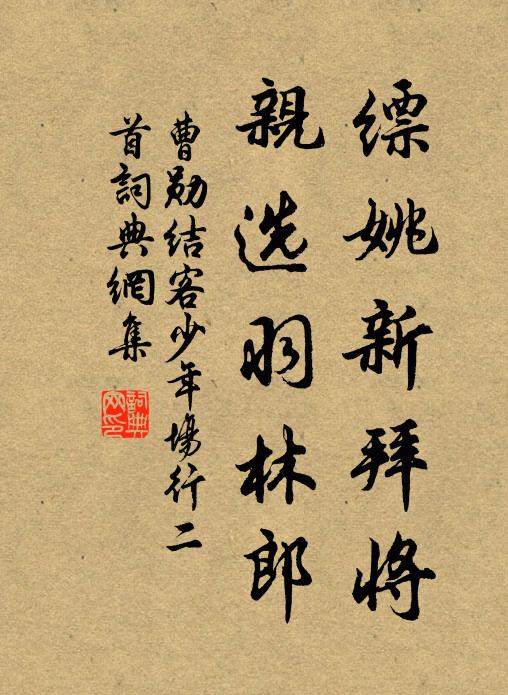 缥姚新拜將
親选羽林郎
曹勋结客少年場行二
首詞典網集
詞典
网印